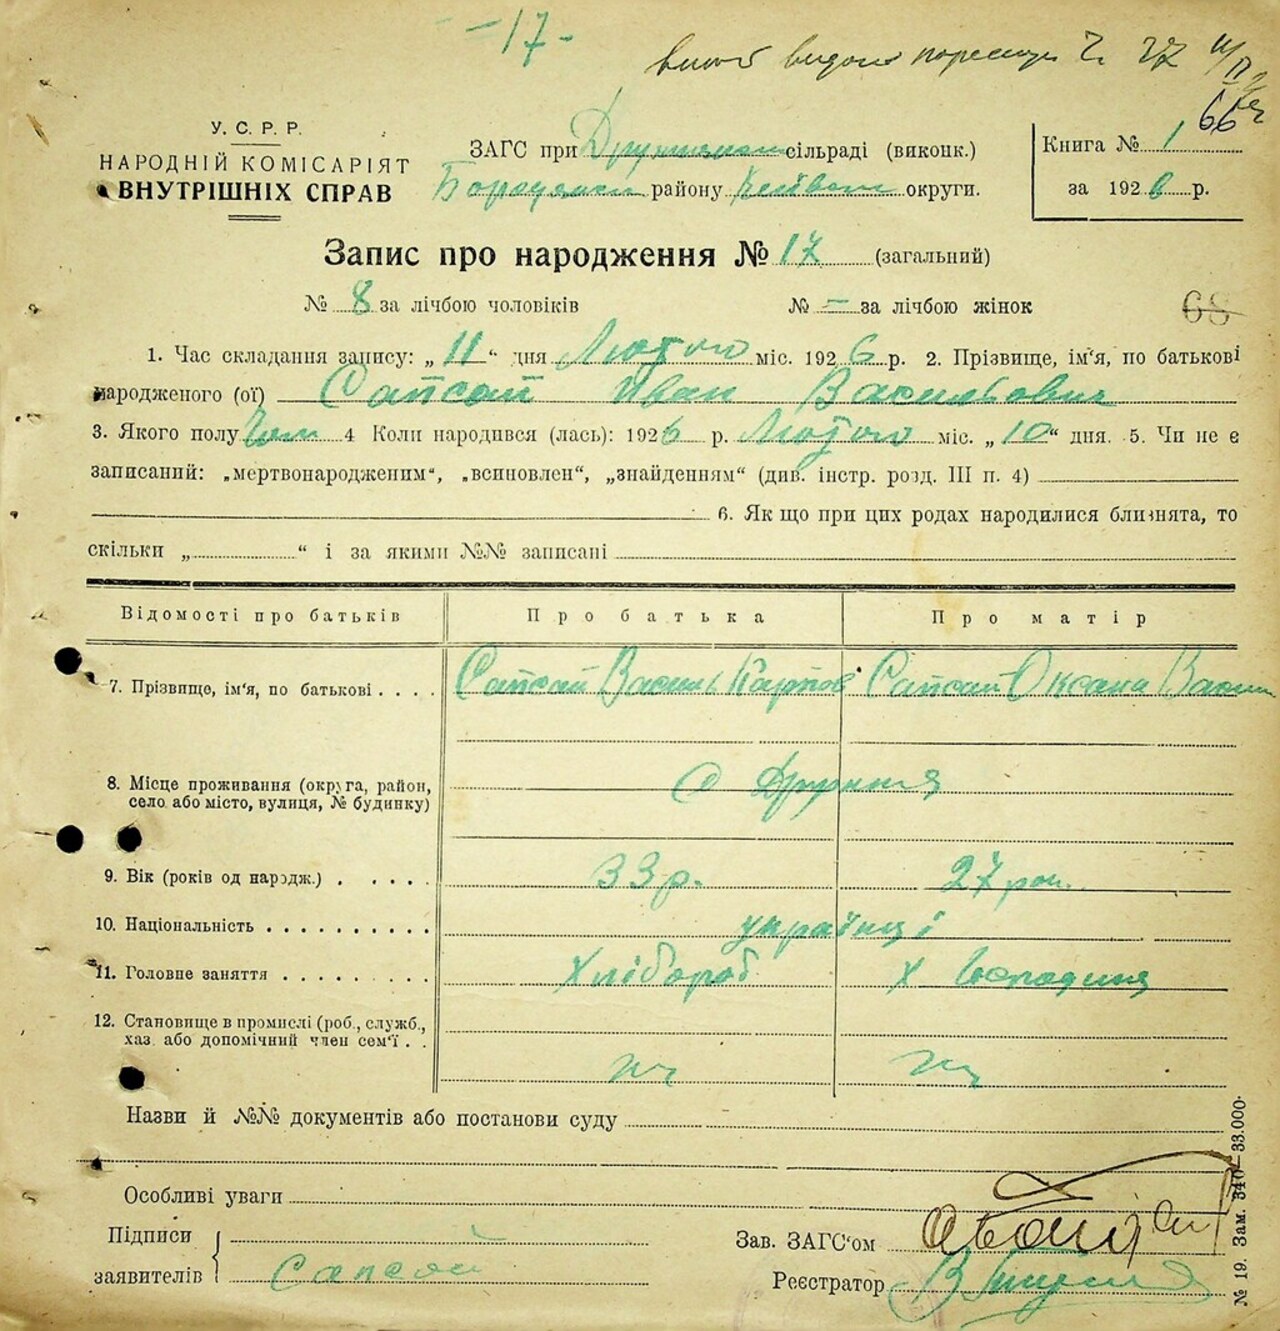 -17-
66
У. С. Р. Р.
НАРОДНІЙ КОМІСАРІЯТ
ВНУТРІШНІХ СПРАВ
ЗАГС при сільраді (виконк.)
району округи.
Книга № 1
за 1926 р.
Запис про народження № 17 (загальний)
№ 8 за лічбою чоловіків № — за лічбою жінок
68
1. Час складання запису: „11“ дня Лютого міс. 1926 р. 2. Прізвище, ім'я, по батькові
народженого (ої) Сапсай Иван Васильович
3. Якого полу Чол 4 Коли народився (лась): 1926 р. Лютого міс. „10“ дня. 5. Чи не є
записаний: „мертвонародженим“, „всиновлен“, „знайденням“ (див. інстр. розд. III п. 4)
6. Як що при цих родах народилися близнята, то
скільки „ “ і за якими №№ записані
Відомості про батьків Про батька Про матір
7. Прізвище, ім'я, по батькові . . . . Сапсай Василь Карпов Сапсай Оксана Васил
8. Місце проживання (округа, район,
село або місто, вулиця, № будинку) с Дружня
9. Вік (років од народж.) . . . . . 33 р. 27 рок.
10. Національність . . . . . . . . . . українці
11. Головне заняття . . . . . . . . Хлібороб Х Господиня
12. Становище в промислі (роб., служб.,
хаз. або допомічний член сем'ї . .
Назви й №№ документів або постанови суду
Особливі уваги
Підписи
заявителів
Сапсай
Зав. ЗАГС'ом
Реєстратор
№ 19. Зам. 340—33.000.